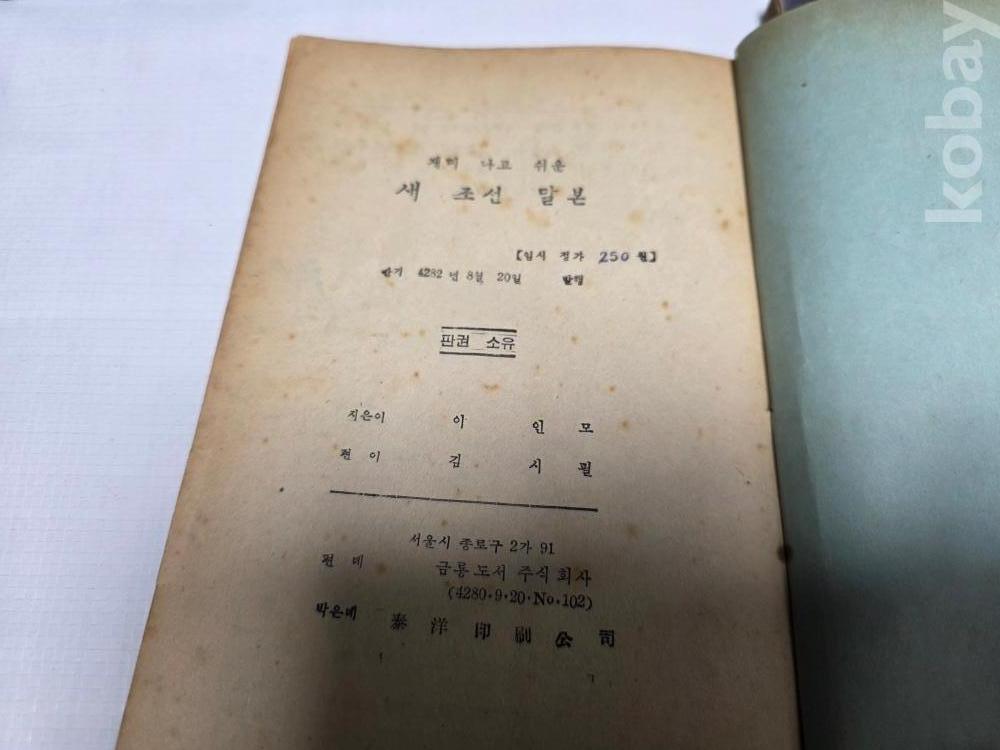 재미 나고 쉬운
새 조선 말본
[임시 정가 250원]
단기 4282년 8월 20일 발행
판권 소유
지은이 이 인 모
편 이 김 시 필
서울시 종로구 2가 91
편 데 금룡도서 주식회사
(4280·9·20·No.102)
박은데 泰洋印刷公司
kobay